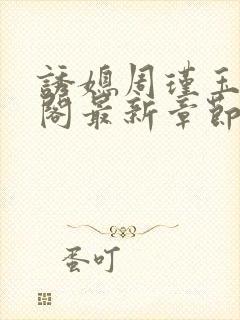 誘媳周瑾玉
閣最新章節
蛋叮